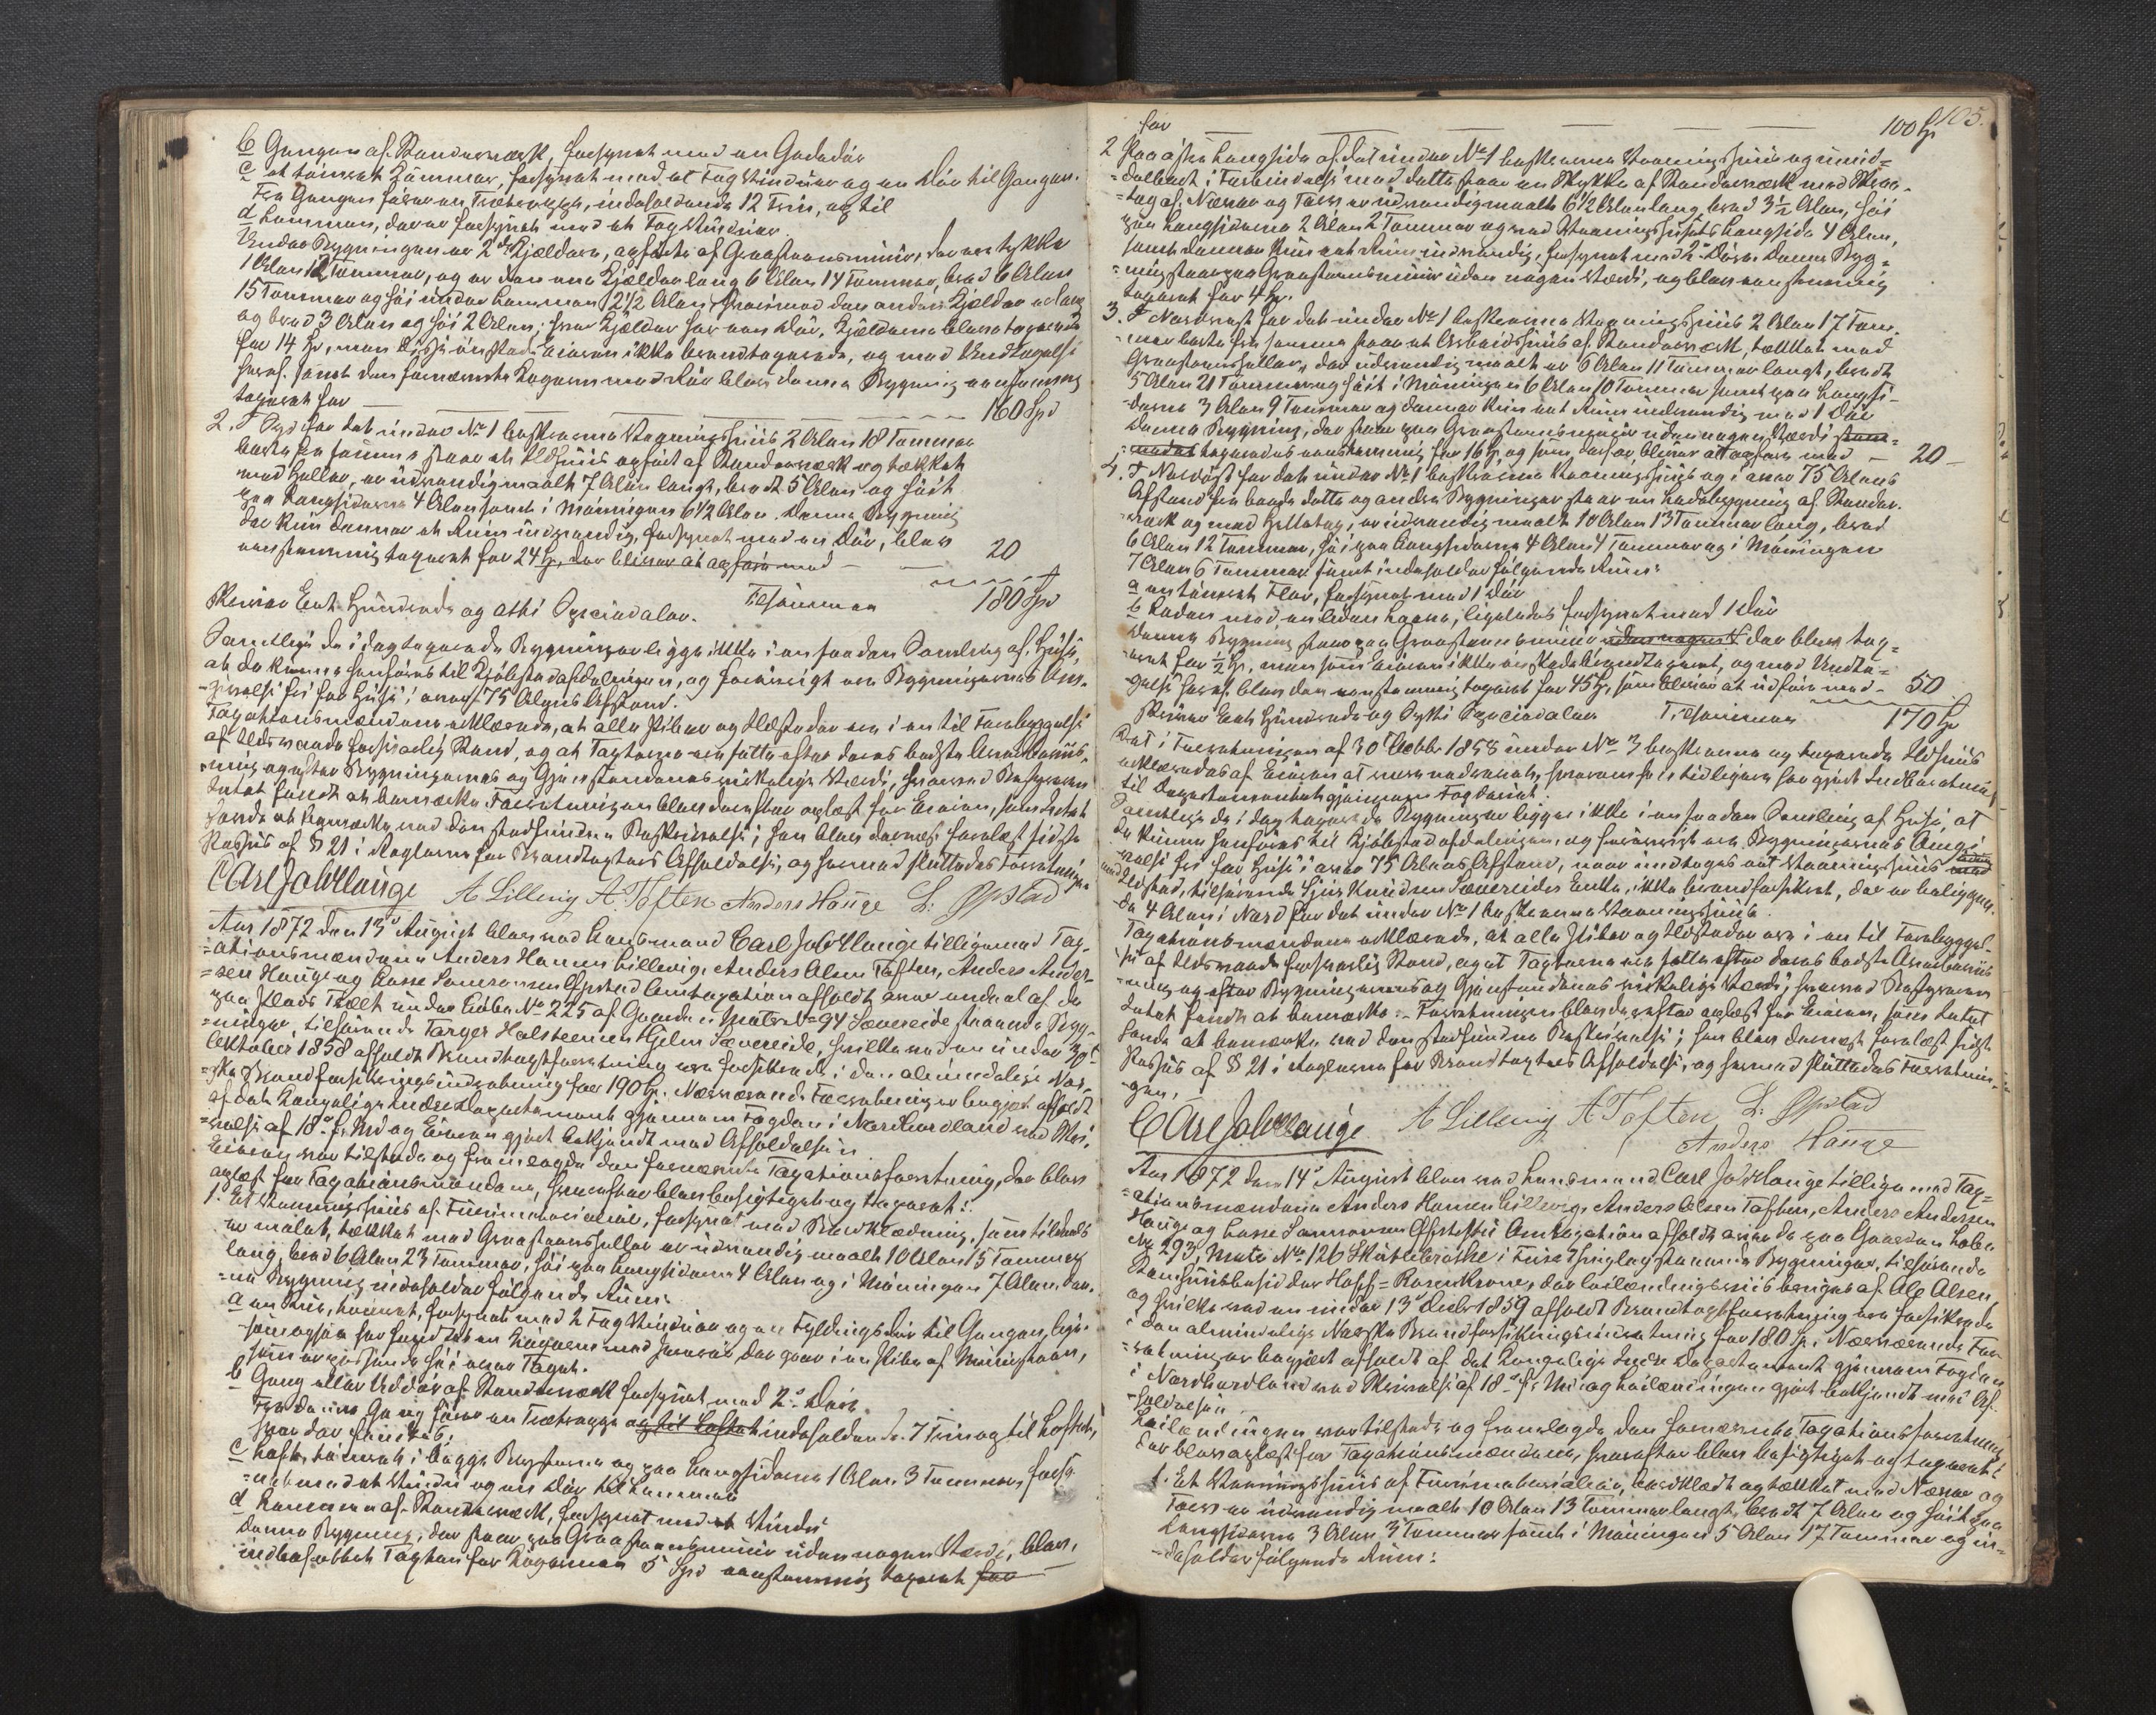 b Gangen af Standerværk, forsynet med en Gadedør
c et tømret Kammer, forsynet med et Fag Vinduer og en Dør til Gangen.
Fra Gangen fører en Trætrappe, indeholdende 12 Trin, op til
d Lemmen, der er forsynet med et Fag Vinduer
Under Bygningen er 2de Kjældere, opførte af Graasteensmuur, der er tykke
1 Alen 12 Tommer, og er den ene Kjælder lang 6 Alen 14 Tommer, bred 6 Alen
15 Tommer og høi under Lemmen 2 1/2 Alen, hvorimod den anden Kjælder er lang
og bred 3 Alen og høi 2 Alen; hver Kjælder har een Dør. Kjælderne bleve taxerede
for 14 Spd, men disse ønskede Eieren ikke brandtaxerede, og med Undtagelse
heraf samt den fornævnte Kogeovn med Rør blev denne Bygning eenstemmig
taxeret for 160 Spd
2. I Syd for det under No 1 beskrevne Vaaningshuus 2 Alen 18 Tommer
borte fra samme staar et Ildhuus opført af Standerværk og tækket
med Heller, er udvendig maalt 7 Alen langt, bredt 5 Alen og høit
paa Langsiderne 4 Alen samt i Møningen 6 1/2 Alen. Denne Bygning
der kun danner et Rum indvendig, forsynet med en Dør, blev
eenstemmig taxeret for 24 Spd, der bliver at opføre med 20
Tilsammen 180 Spd
Skriver Eet Hundrede og otti Speciedaler.
Samtlige de i dag taxerede Bygninger ligge ikke i en saadan Samling af Huse,
at de kunne henføres til Kjøbstadafdelingen, og forøvrigt ere Bygningernes Om-
givelse fri for Huse i over 75 Alens Afstand.
Taxationsmændene erklærede, at alle Piber og Ildsteder ere i en til Forebyggelse
af Ildsvaade forsvarlig Stand, og at Taxterne ere satte efter deres bedste Overbeviis-
ning og efter Bygningernes og Gjenstandenes virkelige Værdi, hvorved Bestyreren
Intet fandt at bemærke. Forretningen blev derefter oplæst for Eieren, som Intet
havde at bemærke ved den stedfundne Beskrivelse; han blev dernæst forelæst sidste
Passus af § 21 i Reglerne for Brandtaxters Afholdelse, og hermed sluttedes Forretningen
Carl Joh Hauge A Lillevig A. Toften Anders Hauge L: Opstad
Aar 1872 den 13de August blev ved Lensmand Carl Joh Hauge tilligemed Tax-
ationsmændene Anders Hansen Lillevig, Anders Olsen Toften, Anders Ander-
sen Hauge og Lasse Samsonsen Opstad Omtaxation afholdt over endeel af de
paa Plads Tvelt under Løbe No 225 af Gaarden Matr No 94 Sævereide staaende Byg-
ninger, tilhørende Torger Holstensen Hjelm Sævereide, hvilke ved en under 30te
Oktober 1858 afholdt Brandtaxtforretning ere forsikrede i den almindelige Nor-
ske Brandforsikringsindretning for 190 Spd. Nærværende Forretning er begjært afholdt
af det Kongelige Indre Departement gjennem Fogden i Nordhordland ved Skri-
velse af 18de f. Md og Eieren gjort bekjendt med Afholdelsen
Eieren var tilstede og fremlagde den fornævnte Taxationsforretning, der blev
oplæst for Taxationsmændene, hvorefter blev besigtiget og taxeret:
1. Et Vaaningshuus af Tømmermateriale, forsynet med Bordklædning, som tildeels
er malet, tækket med Graasteensheller er udvendig maalt 10 Alen 15 Tommer
lang, bred 6 Alen 23 Tommer, høi paa Langsiderne 4 Alen og i Møningen 7 Alen. Den-
ne Bygning indeholder følgende Rum:
a en Stue, tømret, forsynet med 2 Fag Vinduer og en Fyldingsdør til Gangen, lige-
som ogsaa har fundtet en Kogeovn med Jernrør der gaar i en Pibe af Muursteen,
som er opstaaende høi over Taget.
b Gang eller Uddør af Standerværk forsynet med 2de Døre.
Fra denne Gang fører en Trætrappe op til Loftet indeholdende 7 Trin og til Loftet,
hvor der findes:
c Loft, tømret i begge Brøsterne og paa Langsiderne 1 Alen 3 Tommer, forsy-
net med et Vindu og en Dør til Lemmen
d Lemmen af Standerværk, forsynet med et Vindu
Denne Bygning, der staar paa Graasteensmuur uden nogen Værdi, blev,
indbefattet Taxten for Kogeovnen 5 Spd eenstemmig taxeret for
105.
for 100 Spd
2 Paa østre Langside af det under No 1 beskrevne Vaaningshuus og umid-
delbart i Forbindelse med dette staar en Skykke af Standerværk med Skraa-
tag af Næver og Torv er udvendig maalt 6 1/2 Alen lang, bred 3 1/2 Alen, høi
paa Langsiderne 2 Alen 2 Tommer og ved Vaaningshusets Langside 4 Alen,
samt danner kun eet Rum indvendig, forsynet med 2de Døre. Denne Byg-
ning staar paa Graasteensmuur uden nogen Værdi, og blev eenstemmig
taxeret for 4 Spd.
3. I Nordvest for det under No 1 beskrevne Vaaningshuus 2 Alen 17 Tom-
mer borte fra samme staar et Arbeidshuus af Standerværk, tækket med
Graasteensheller, der udvendig maalt er 6 Alen 11 Tommer langt, bredt
5 Alen 21 Tommer og høit i Møningen 6 Alen 10 Tommer samt paa Langsi-
derne 3 Alen 9 Tommer og danner kun eet Rum indvendig med 1 Dør
Denne Bygning, der staar paa Graasteensmuur uden nogen Værdi
taxeredes eenstemmig for 16 Spd og som derfor bliver at opføre med 20
4. I Nordøst for det under No 1 beskrevne Vaaningshuus og i over 75 Alens
Afstand fra baade dette og andre Bygninger staar en Ladebygning af Stander-
værk og med Helletag, er udvendig maalt 10 Alen 13 Tommer lang, bred
6 Alen 12 Tommer, høi paa Langsiderne 4 Alen 4 Tommer og i Møningen
7 Alen 6 Tommer samt indeholder følgende Rum:
a en tømret Flor, forsynet med 1 Dør
b Laden med en liden Laave, ligeledes forsynet med 1 Dør
Denne Bygning staar paa Graasteensmuur uden nogen V der blev tax-
eret for 1/2 Spd, men som Eieren ikke ønskede brandtaxeret, og med Undta-
gelse heraf blev den eenstemmig taxeret for 45 Spd, som bliver at udføre med 50
Skriver Eet Hundrede og Sytti Speciedaler Tilsammen 170 Spd
Det i Forretningen af 30te Octbr 1858 under No 3 beskrevne og taxerede Ildhuus
erklæredes af Eieren at være nedrevet, hvorom han tidligere har gjort Indberetning
til Departementet gjennem Fogderiet.
Samtlige de i dag taxerede Bygninger ligger ikke i en saadan Samling af Huse, at
de kunne henføres til Kjøbstadafdelingen, og forøvrigt ere Bygningernes Omgi-
velse fri for Huse i over 75 Alens Afstand, naar undtages eet Vaaningshuus med
uden Ildsted, tilhørende Huuskvinden Sævereides Enke, ikke brandforsikret, der er beliggen-
de 4 Alen i Nord for det under No 1 beskrevne Vaaningshuus.
Taxationsmændene erklærede, at alle Piber og Ildsteder ere i en til Forebyggel-
se af Ildsvaade forsvarlig Stand, og at Taxterne ere satte efter deres bedste Overbeviis-
ning og efter Bygningernes og Gjenstandenes virkelige Værdi, hvorved Bestyreren
Intet fandt at bemærke. Forretningen blev derefter oplæst for Eieren, som Intet
havde at bemærke ved den stedfundne Beskrivelse; han blev dernæst forelæst sidste
Passus af § 21 i Reglerne for Brandtaxters Afholdelse, og hermed sluttedes Forretnin-
gen.
Carl Joh Hauge A Lillevig A Toften L: Opstad
Anders Hauge
Aar 1872 den 14de August blev ved Lensmand Carl Joh Hauge tilligemed Tax-
ationsmændene Anders Hansen Lillevig, Anders Olsen Toften, Anders Andersen
Hauge og Lasse Samsonsen Opstad Omtaxation afholdt over de paa Gaarden Løbe
No 293, Matr No 126 Skutlebrække i Fuse Thinglag staaende Bygninger, tilhørende
Stamhuusbesidder Hoff-Rosenkrone, der leilændingsviis bruges af Ole Olsen,
og hvilke ved en under 13de Decbr 1859 afholdt Brandtaxtforretning ere forsikrede
i den almindelige Norske Brandforsikringsindretning for 180 Spd. Nærværende For-
retning er begjært afholdt af det Kongelige Indre Departement gjennem Fogden
i Nordhordland ved Skrivelse af 18de f. Md og Leilændingen gjort bekjendt med Af-
holdelsen
Leilændingen var tilstede og fremlagde den fornævnte Taxationsforretning
der blev oplæst for Taxationsmændene, hvorefter blev besigtiget og taxeret:
1. Et Vaaningshuus af Tømmermateriale, bordklædt og tækket med Næver og
Torv er udvendig maalt 10 Alen 13 Tommer langt, bredt 7 Alen og høit paa
Langsiderne 3 Alen 3 Tommer samt i Møningen 5 Alen 17 Tommer og in-
deholder følgende Rum: